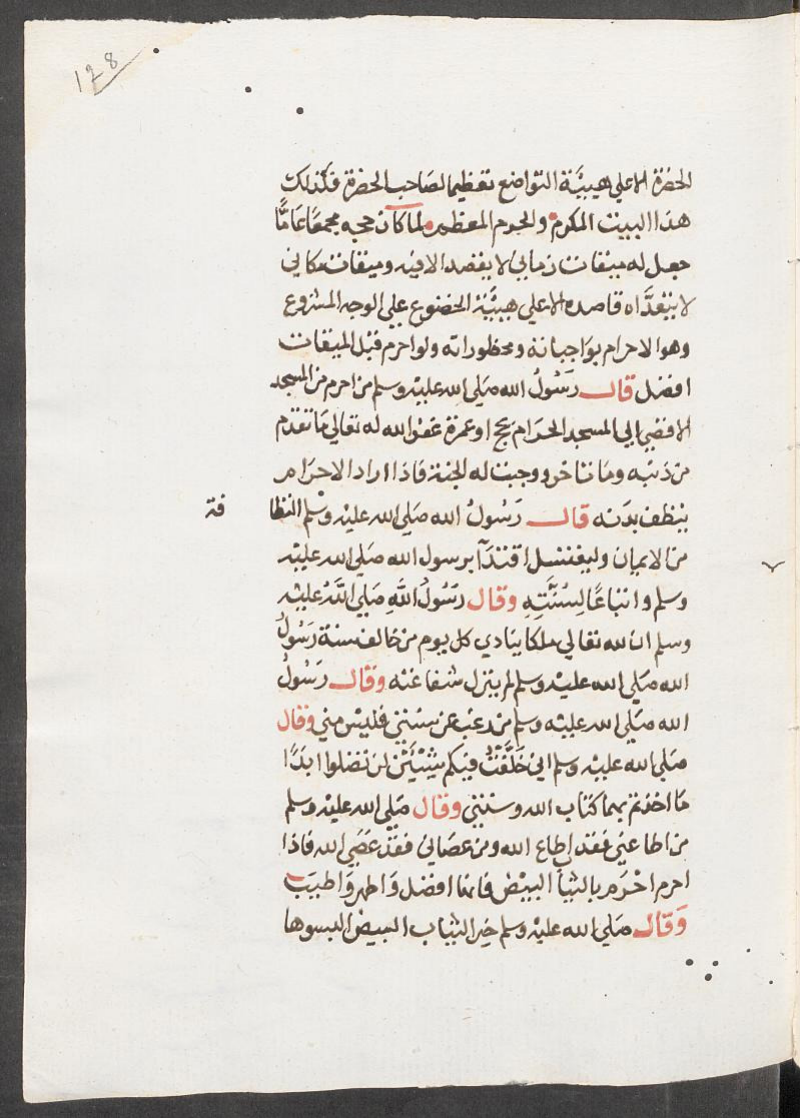 128
الحضرة الاعلي هيئة التواضع تعظيما لصاحب الحضرة فكذلك
هذا البيت المكرم والحرم المعظم لما كان حجه مجمعا عاما
جعل له ميقات زماني لا يقصد الا فيه وميقات مكاني
لا يتعداه قاصده الا علي هيئة الخضوع علي الوجه المشروع
وهو الاحرام بواجباته ومحظوراته ولو احرم قبل الميقات
افضل قال رَسُولُ الله صَلي الله عليه وسلم من احرم من المسجد
الاقصي الي المسجد الحرام بحج او عمرة غفر الله له تعالي ما تقدم
من ذنبه وما تاخر ووجبت له الجنة فاذا اراد الاحرام
ينظف بدنه قال رَسُولُ الله صَلي الله عليه وسلم النظا
فة
من الايمان وليغتسل اقتدآ برسول الله صَلي الله عليه
وسلم واتباعًا لِسُنَّتِهِ وقال رَسُولُ اللهِ صَلي اللهُ عليه
وسلم ان لله تعالي ملكا ينادي كل يوم من خالف سنة رَسُولُ
الله صَلي الله عليه وسلم لم ينزل شفاعته وقال رَسُولُ
الله صَلي الله عليه وسلم من رغب عن سنتي فليس مني وقال
صَلي الله عليه وسلم اني خَلَّفْتُ فيكم شيْئَيْن لن تضلوا ابدًا
ما اخذتم بهما كتاب الله وسنتي وقال صَلي الله عليه وسلم
من اطاعني فقد اطاع الله ومن عصاني فقد عَصَي الله فاذا
احرم احْرَم بالثياب البيْض فانها افضل وَاطهر وَاطيَب
وَقال صَلي الله عليه وسلم خير الثياب البيض البسوها